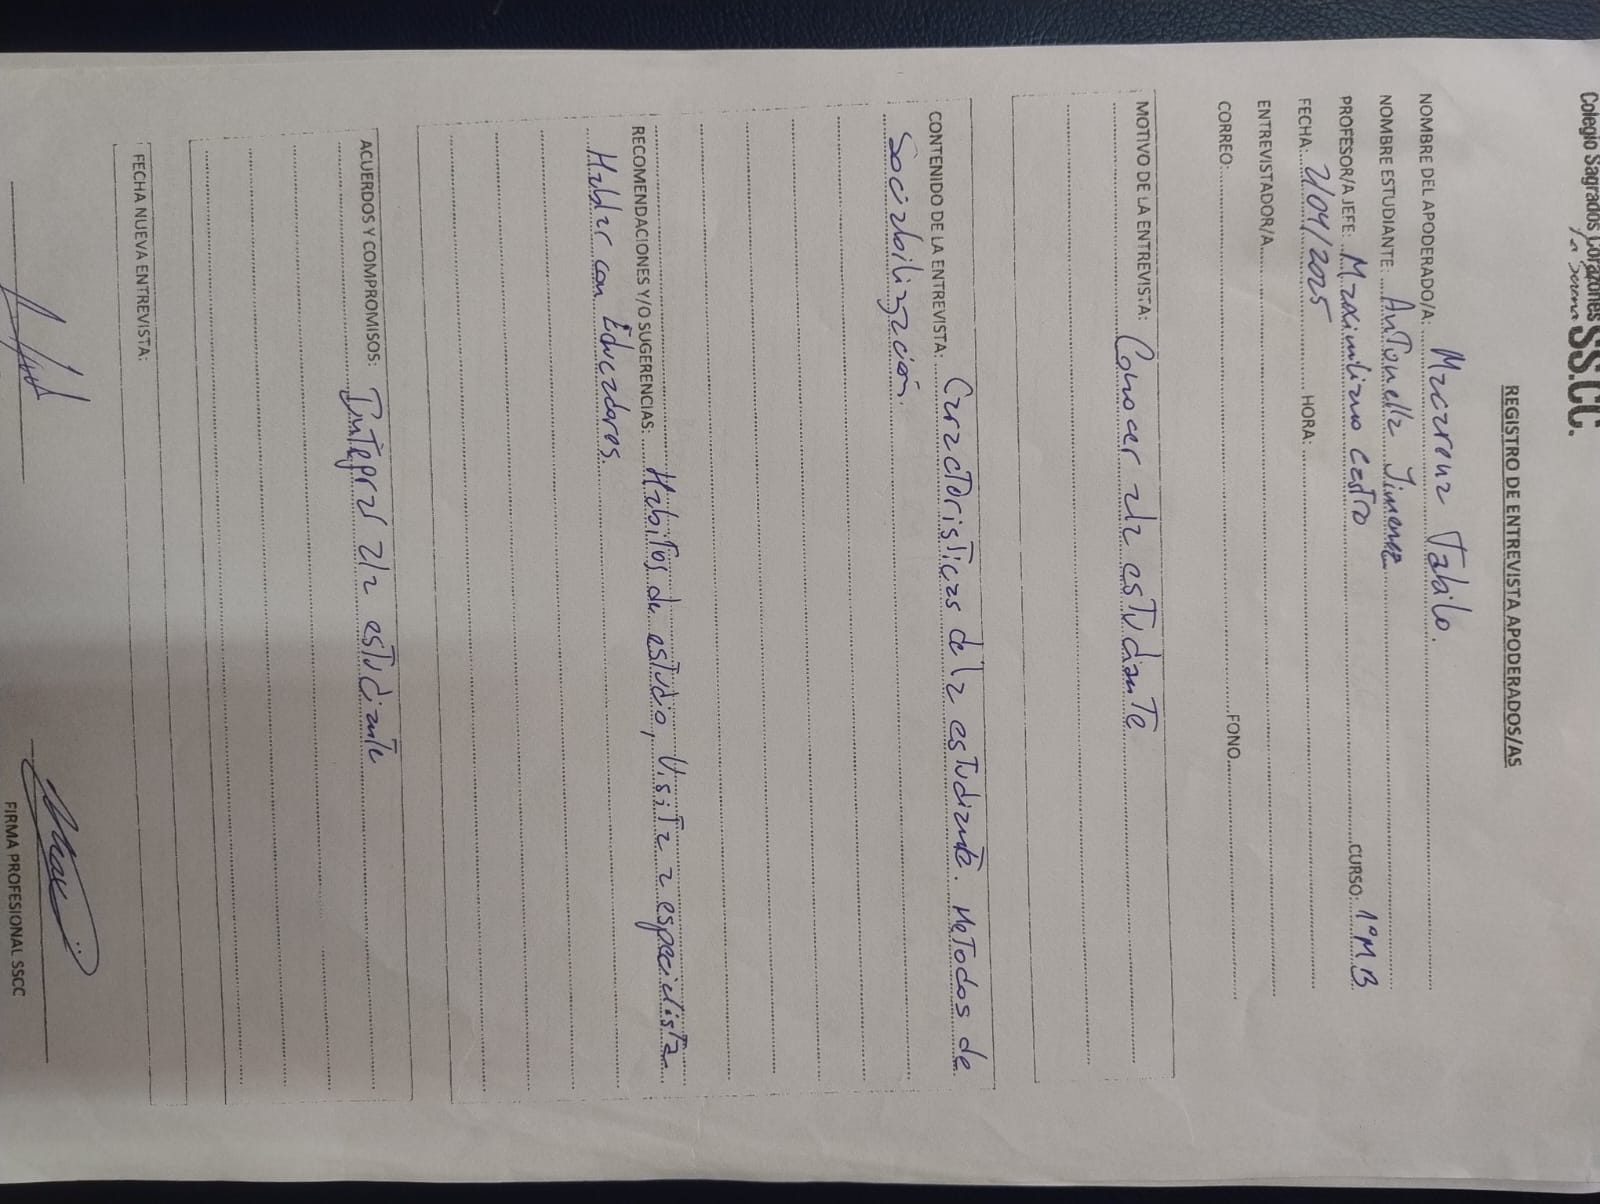 Colegio Sagrados Corazones
La Serena SS.CC.
REGISTRO DE ENTREVISTA APODERADOS/AS
NOMBRE DEL APODERADO/A: Macarena Tabilo.
NOMBRE ESTUDIANTE Antonella Jimenez
PROFESOR/A JEFE: Maximiliano Castro CURSO: 1°M B
FECHA: 2/04/2025 HORA:
ENTREVISTADOR/A
CORREO: FONO
MOTIVO DE LA ENTREVISTA: Conocer a la estudiante
CONTENIDO DE LA ENTREVISTA: Caracteristicas de la estudiante. Metodos de
Sociabilización.
RECOMENDACIONES Y/O SUGERENCIAS: Habitos de estudio, Visita a especialista
Hablar con Educadores.
ACUERDOS Y COMPROMISOS: Integrar a la estudiante
FECHA NUEVA ENTREVISTA:
FIRMA PROFESIONAL SSCC